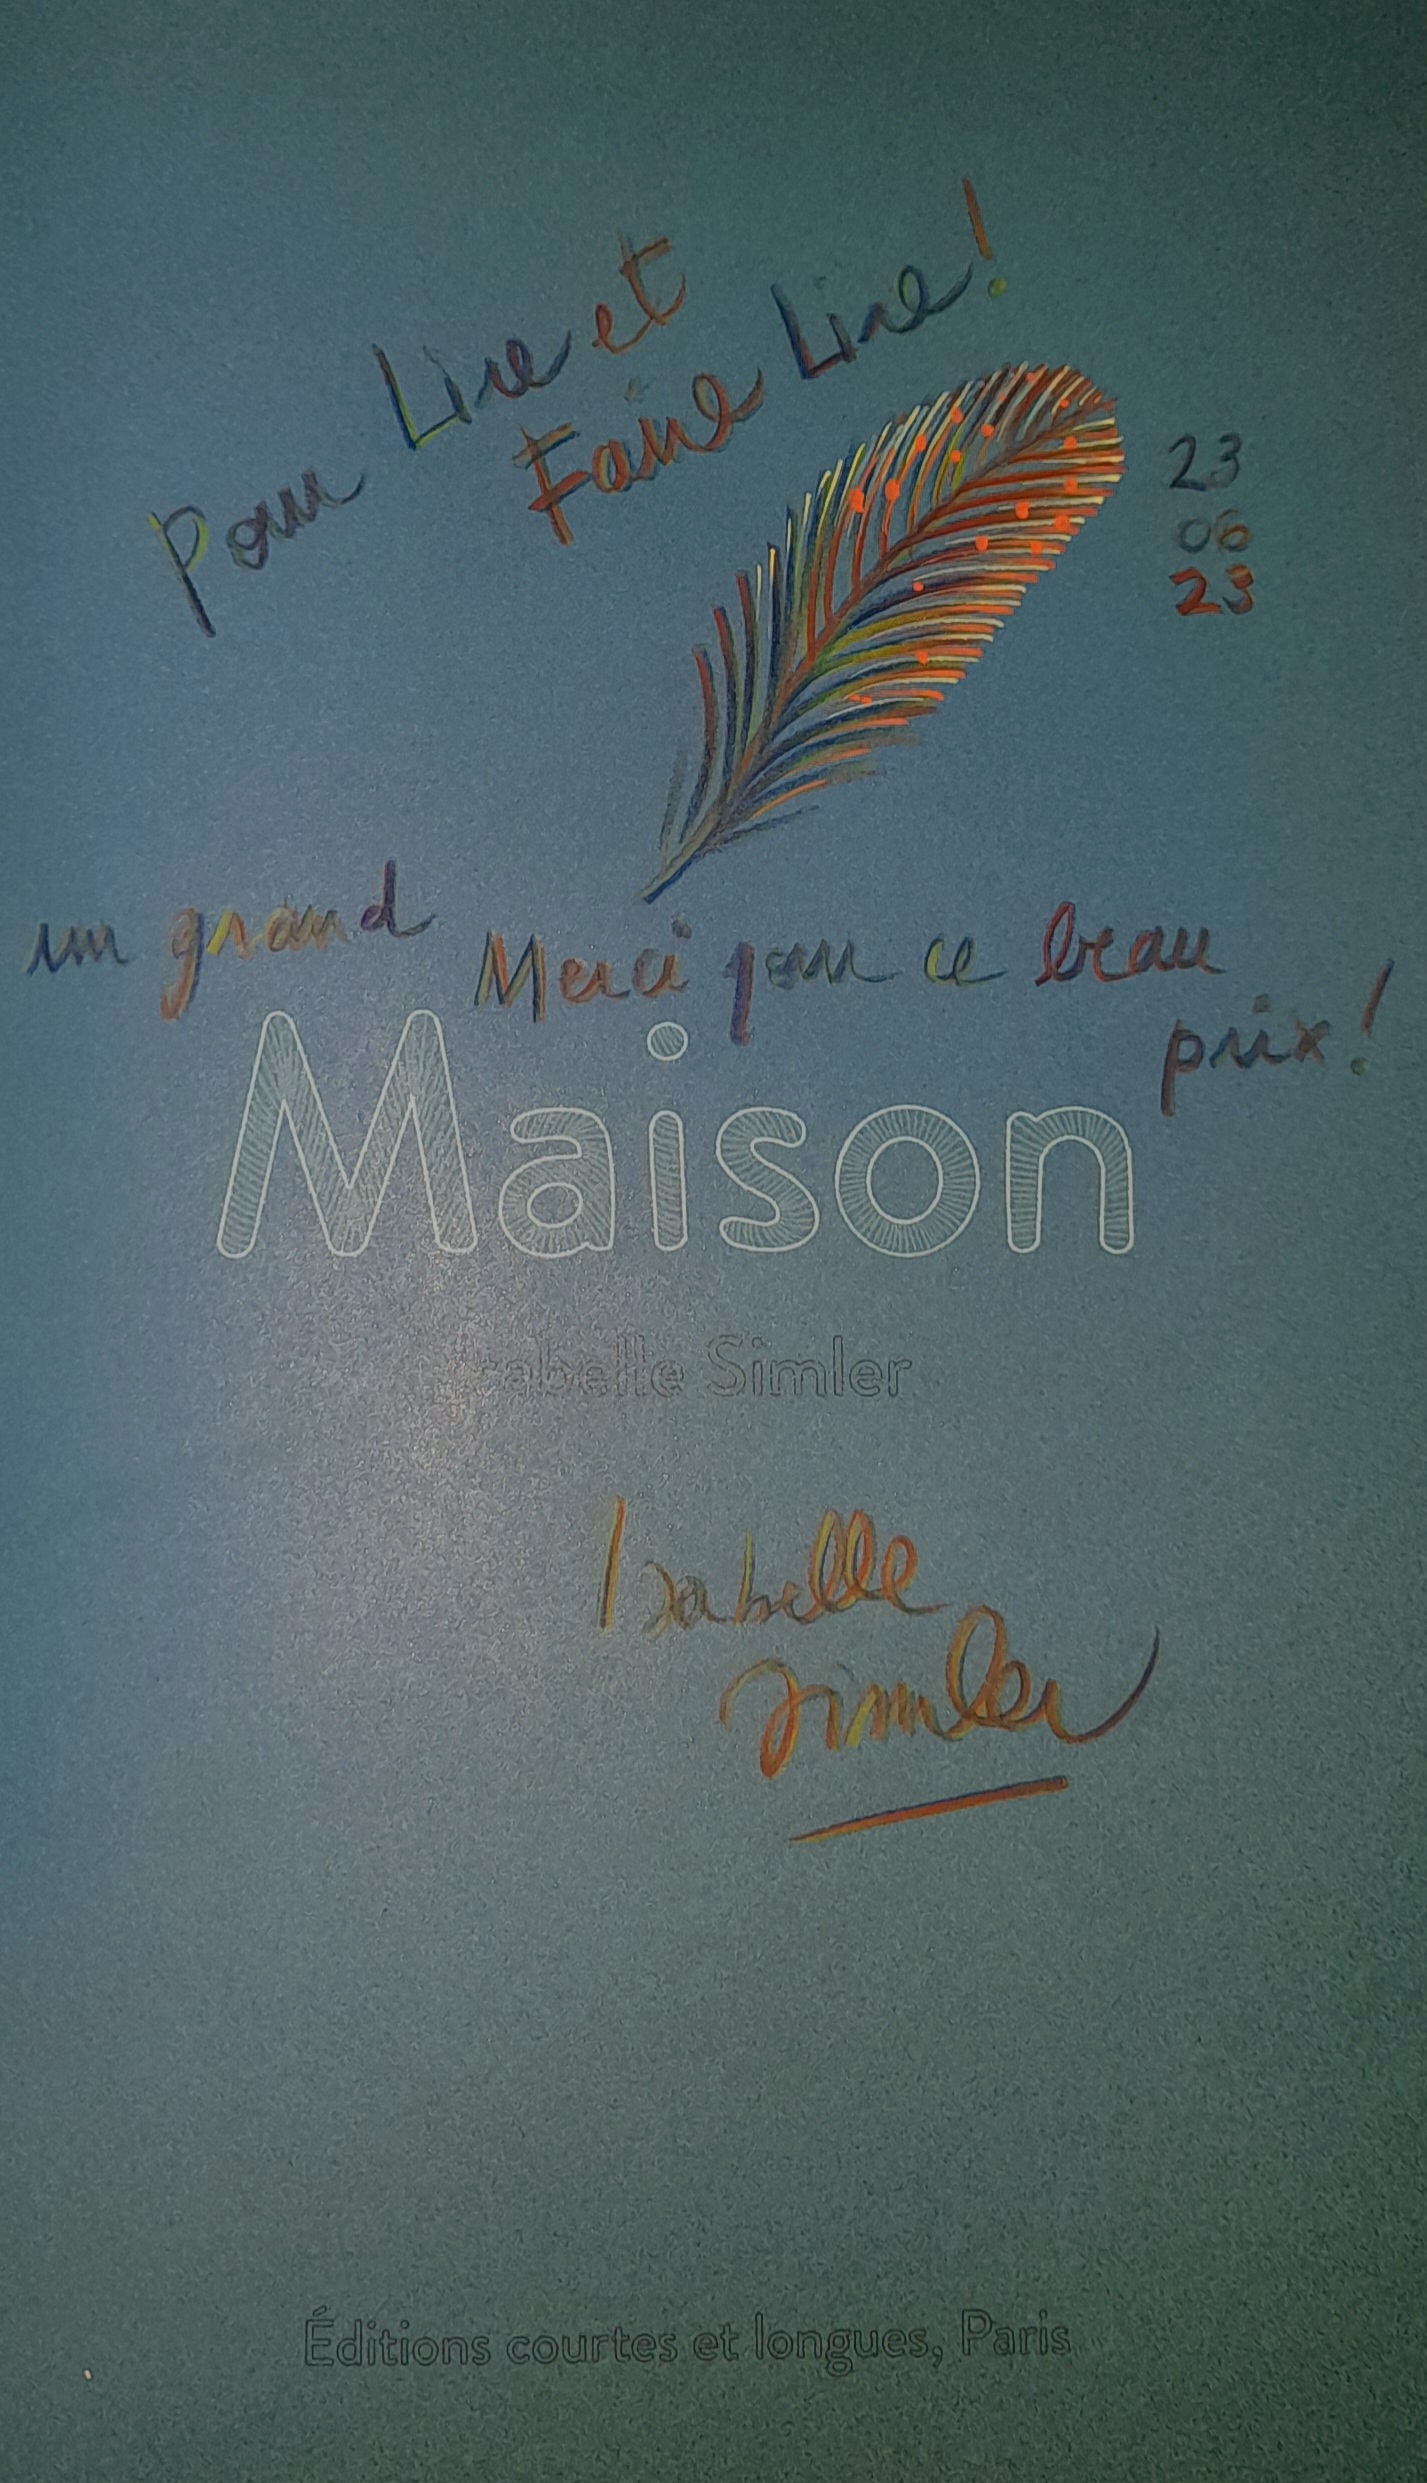 Pour Lire et
Faire Lire!
23
06
23
un grand Merci pour ce beau
prix!
Maison
Isabelle Simler
Isabelle
Simler
Éditions courtes et longues, Paris